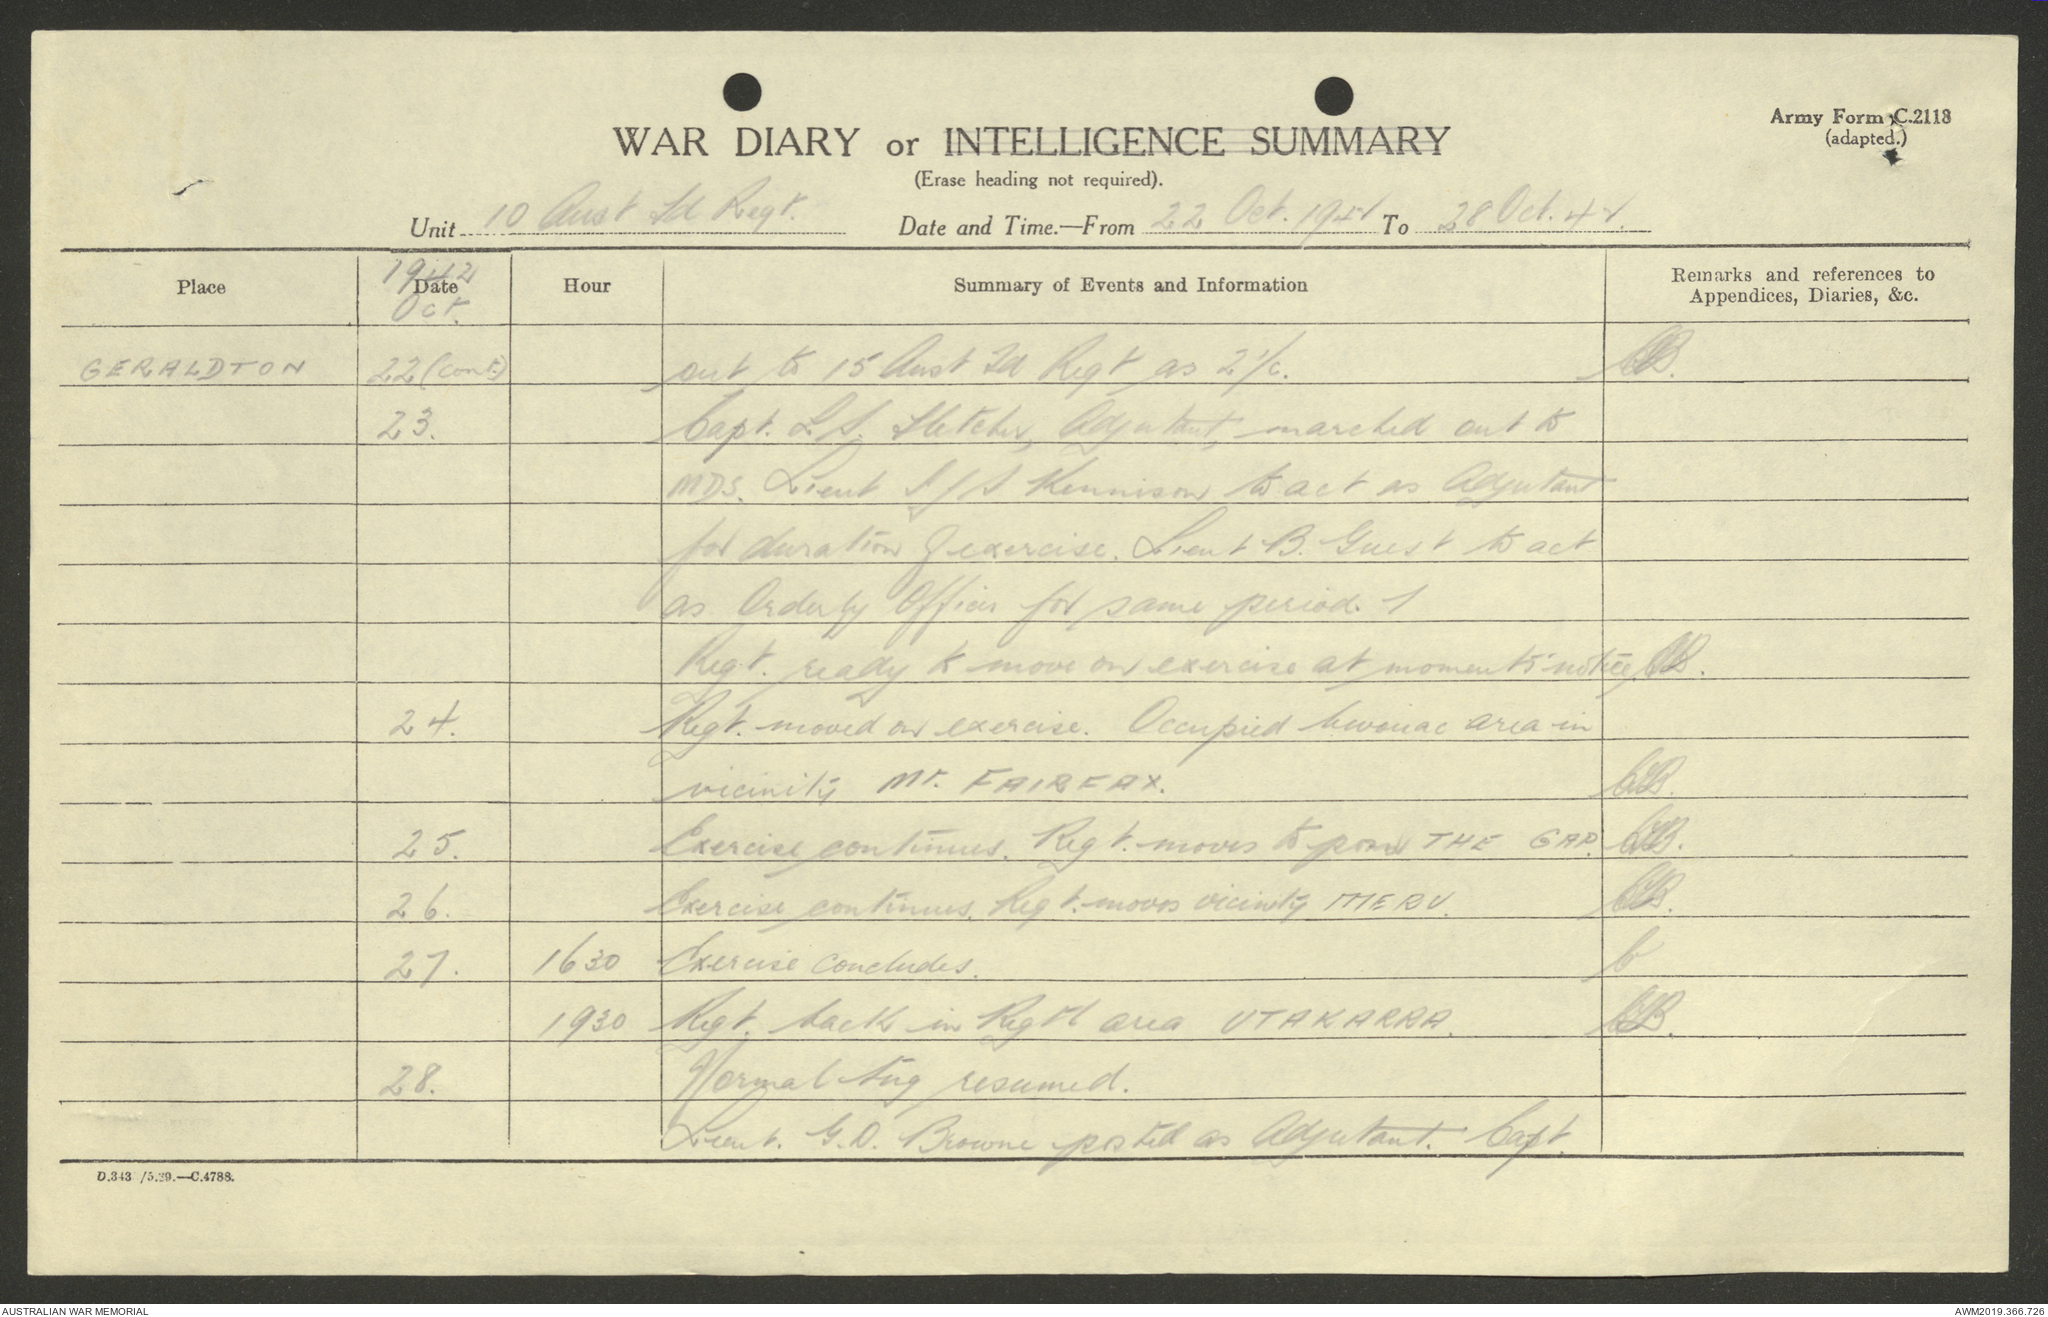 Army Form C.2118
(adapted.)
WAR DIARY or INTELLIGENCE SUMMARY
(Erase heading not required).
Unit 10 Aust Fd Regt. Date and Time.—From 22 Oct. 1942 To 28 Oct. 42.
Place 1942 Date Oct. Hour Summary of Events and Information Remarks and references to Appendices, Diaries, &c.
GERALDTON 22 (cont.) out to 15 Aust Fd Regt as 2 i/c.
23. Capt. L.S. Fletcher, Adjutant, marched out to
MDS. Lieut Kennison to act as Adjutant
for duration of exercise. Lieut B. Guest to act
as Orderly Officer for same period.
Regt. ready to move on exercise at moments notice
24. Regt. moved on exercise. Occupied bivouac area in
vicinity Mt. FAIRFAX.
25. Exercise continues. Regt. moves to posn THE GAP.
26. Exercise continues. Regt. moves vicinity MERU.
27. 1630 Exercise concludes.
1930 Regt. back in Regtl area UTAKARRA.
28. Normal tng resumed.
Lieut. G.D. Browne posted as Adjutant. Capt.
D.343 /5.39.—C.4788.
AUSTRALIAN WAR MEMORIAL
AWM2019.366.726